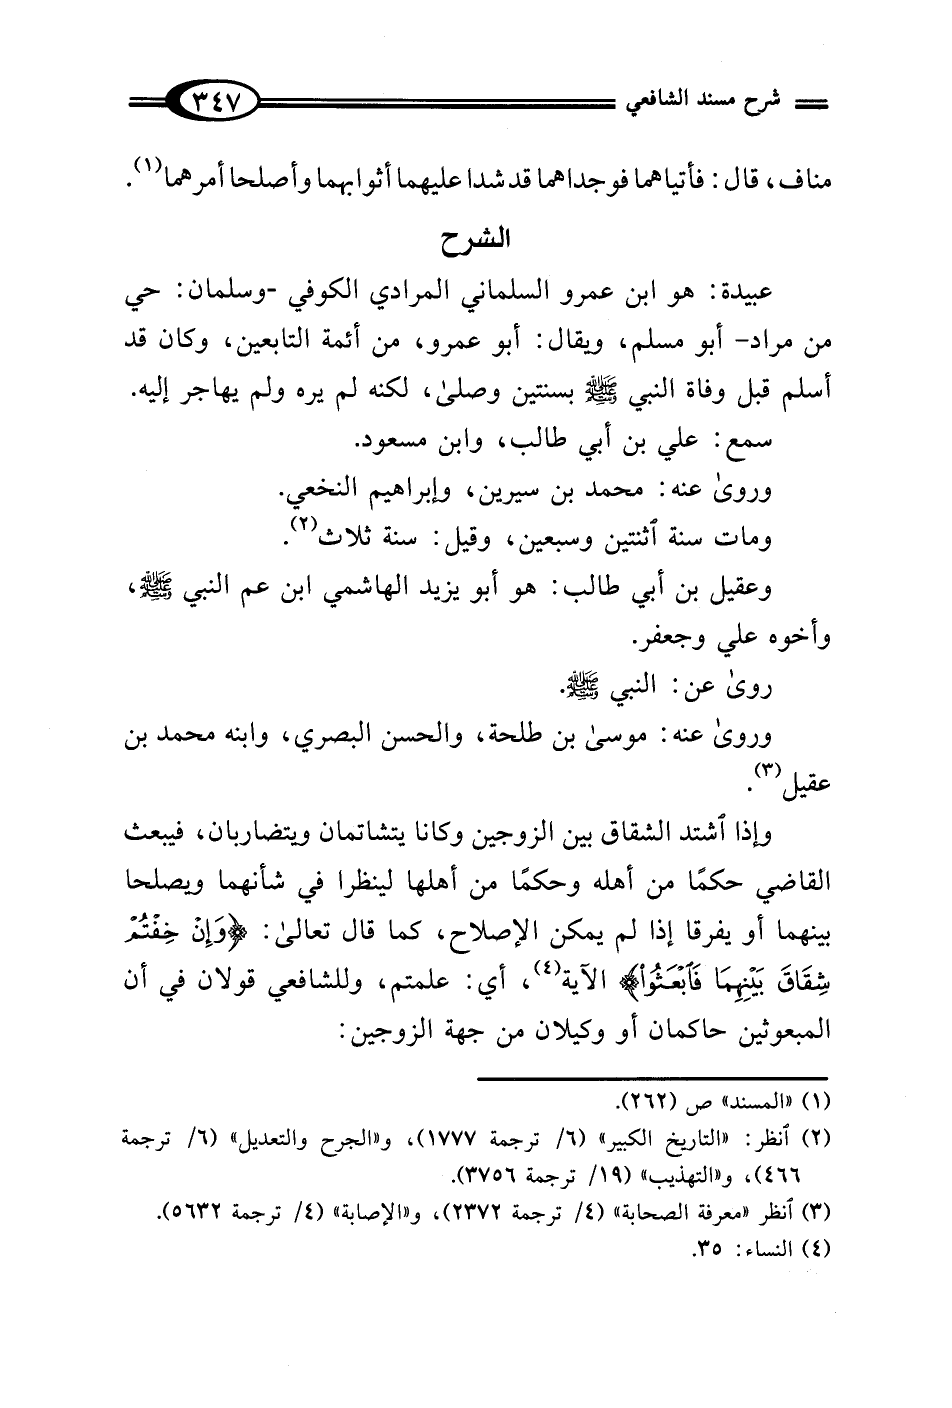 شرح مسند الشافعي ٣٤٧
مناف، قال: فأتياهما فوجداهما قد شدا عليهما أثوابهما وأصلحا أمرهما(١).
الشرح
عبيدة: هو ابن عمرو السلماني المرادي الكوفي -وسلمان: حي
من مراد- أبو مسلم، ويقال: أبو عمرو، من أئمة التابعين، وكان قد
أسلم قبل وفاة النبي ﷺ بسنتين وصلىٰ، لكنه لم يره ولم يهاجر إليه.
سمع: علي بن أبي طالب، وابن مسعود.
وروىٰ عنه: محمد بن سيرين، وإبراهيم النخعي.
ومات سنة ٱثنتين وسبعين، وقيل: سنة ثلاث(٢).
وعقيل بن أبي طالب: هو أبو يزيد الهاشمي ابن عم النبي ﷺ،
وأخوه علي وجعفر.
روىٰ عن: النبي ﷺ.
وروىٰ عنه: موسىٰ بن طلحة، والحسن البصري، وابنه محمد بن
عقيل(٣).
وإذا ٱشتد الشقاق بين الزوجين وكانا يتشاتمان ويتضاربان، فيبعث
القاضي حكمًا من أهله وحكمًا من أهلها لينظرا في شأنهما ويصلحا
بينهما أو يفرقا إذا لم يمكن الإصلاح، كما قال تعالىٰ: ﴿وَإِنْ خِفْتُمْ
شِقَاقَ بَيْنِهِمَا فَٱبْعَثُوا۟﴾ الآية(٤)، أي: علمتم، وللشافعي قولان في أن
المبعوثين حاكمان أو وكيلان من جهة الزوجين:
(١) «المسند» ص (٢٦٢).
(٢) ٱنظر: «التاريخ الكبير» (٦/ ترجمة ١٧٧٧)، و«الجرح والتعديل» (٦/ ترجمة
٤٦٦)، و«التهذيب» (١٩/ ترجمة ٣٧٥٦).
(٣) ٱنظر «معرفة الصحابة» (٤/ ترجمة ٢٣٧٢)، و«الإصابة» (٤/ ترجمة ٥٦٣٢).
(٤) النساء: ٣٥.